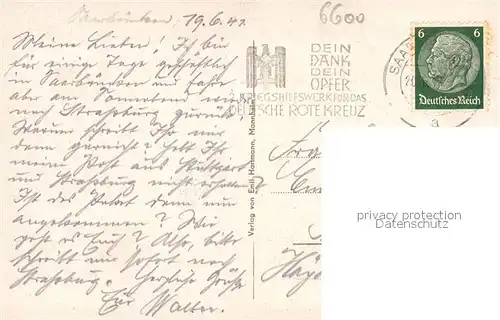 Saarbrücken, 19.6.41.
6600
Meine Lieben! Ich bin
für einige Tage geschäftlich
in Saarbrücken und fahre
aber am Sonnabend wieder
nach Straßburg zurück.
Warum schreibt Ihr mir
denn garnicht? Habt Ihr
meine Post aus Stuttgart
und Straßburg nicht erhalten?
Ist das Paket denn nun
angekommen? Wie
geht es Euch? Also, bitte
schreibt mir sofort nach
Straßburg. Herzliche Grüße
Euer Walter.
DEIN
DANK
DEIN
OPFER
KRIEGSHILFSWERK FÜR DAS
DEUTSCHE ROTE KREUZ
SAAR
a
6 6
Deutsches Reich
Verlag von Emil Hartmann, Mannheim
privacy protection
Datenschutz